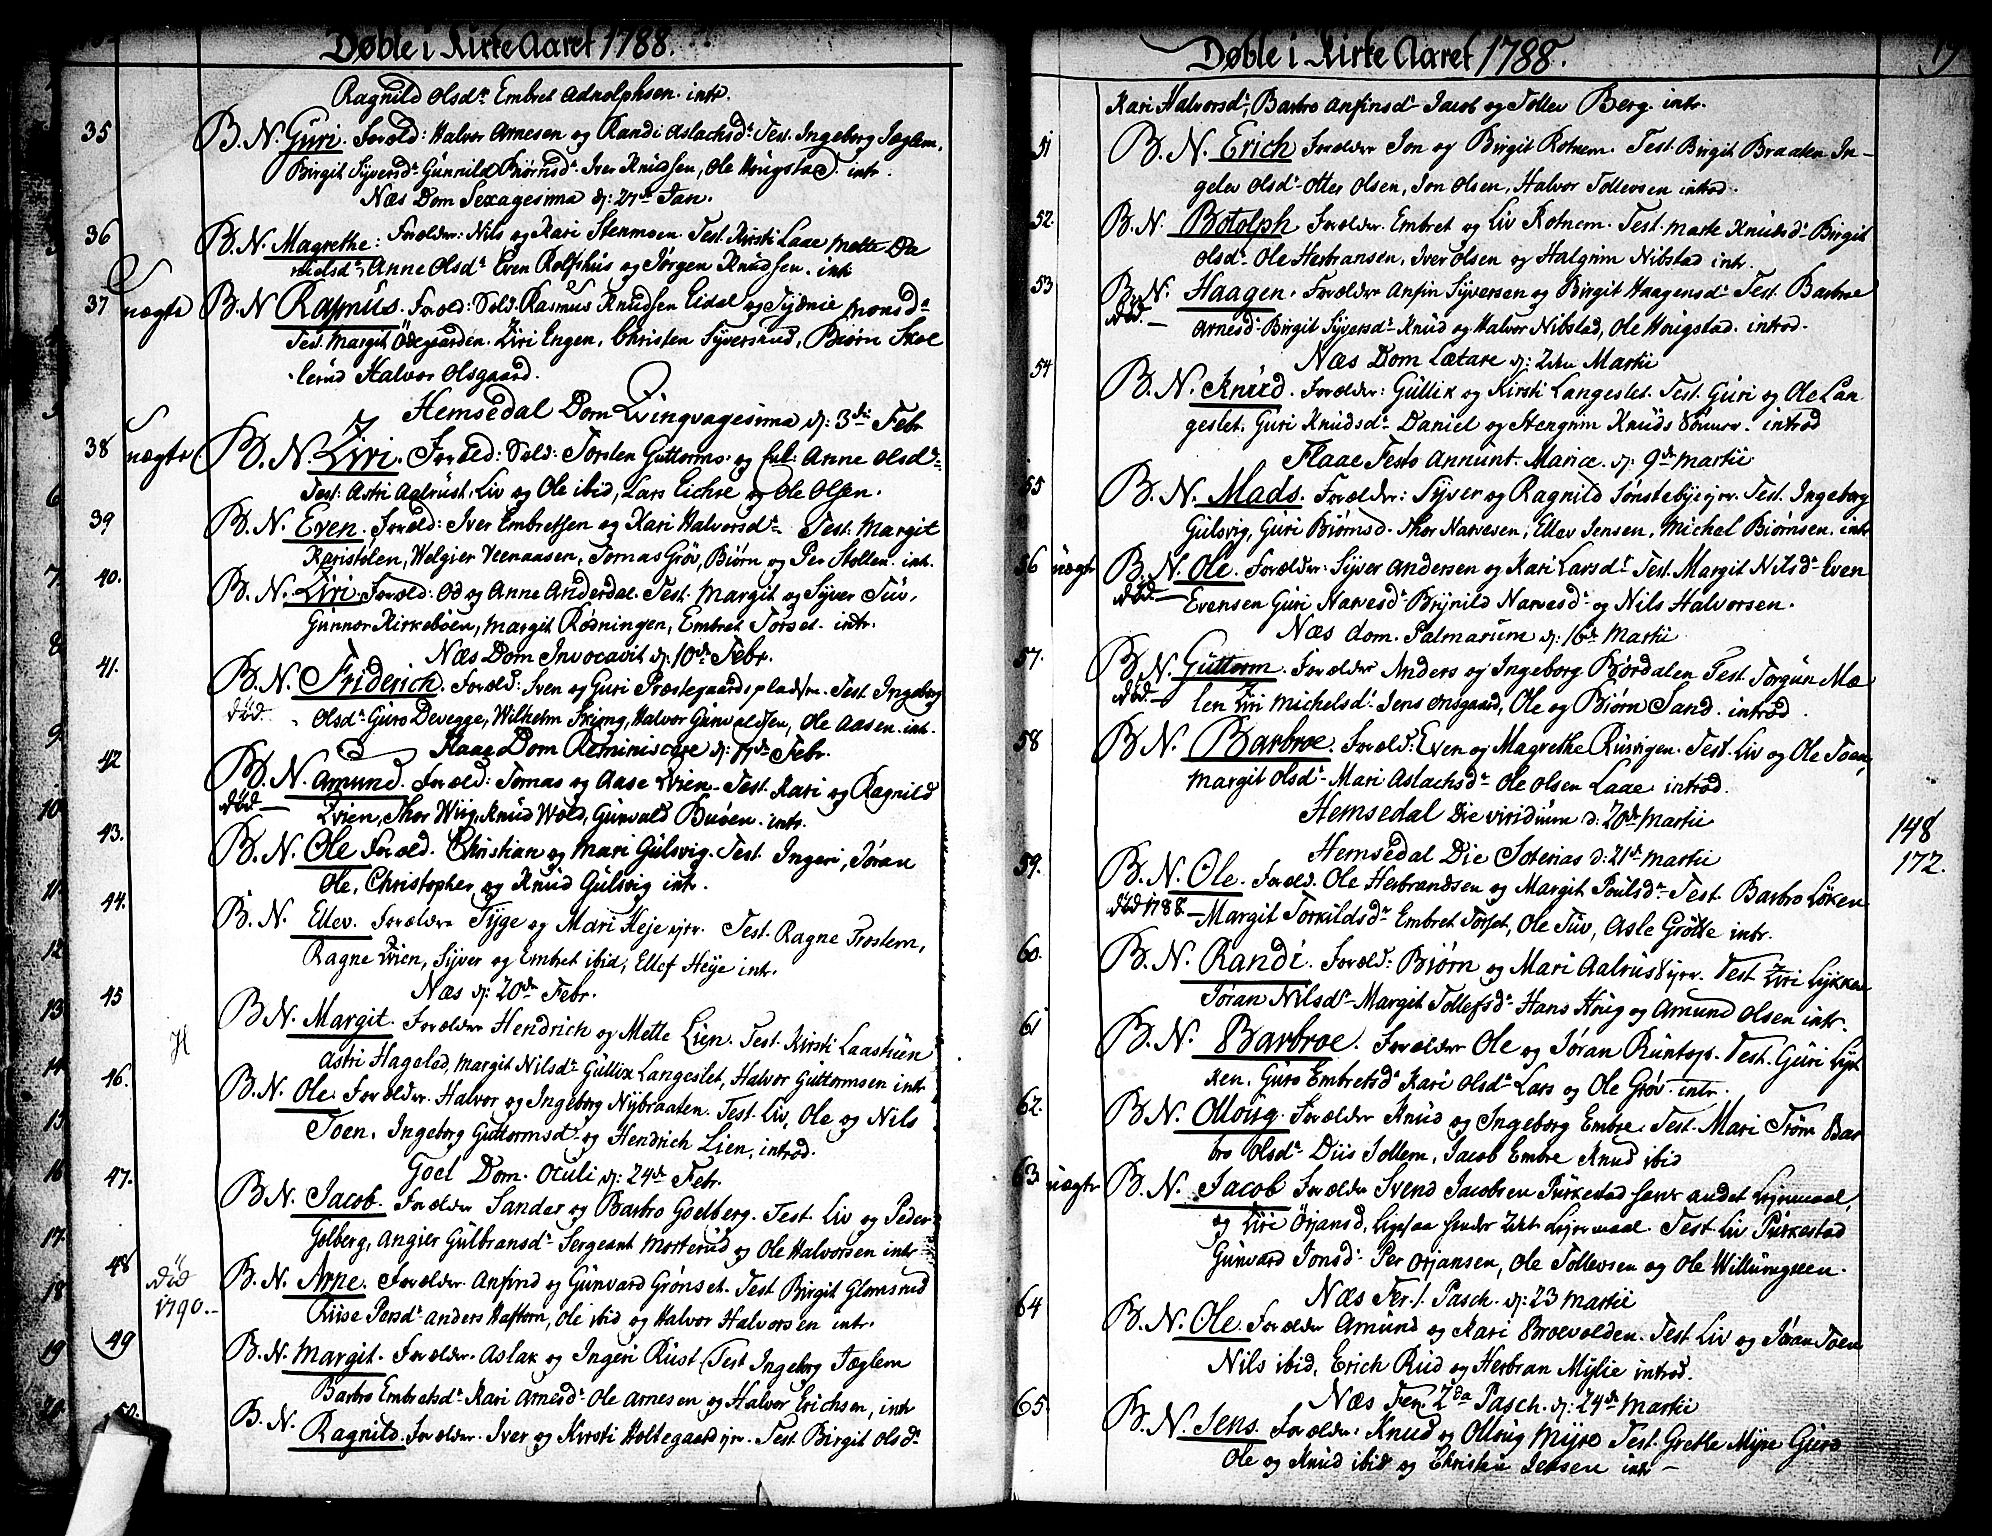 Døbte i Kirke Aaret 1788.
Ragnild Olsdr Embret Adnolphsen. intr.
35 B. N. Guri. Forold: Halvor Arnesen og Randi Aslachsdr Test. Ingeborg Jeglem,
Birgit Syversdr Gunnild Biørnsd. Iver Knudsen, Ole Hougstad. intr.
Næs Dom Sexagesima d: 27de Jan.
36 B. N. Magrethe: Forælder: Nils og Kari Stenmoen. Test. Kirsti Laae Mette Da
nielsdr, Anne Olsdr Even Rolfshus og Jørgen Knudsen. intr
37 nægte B. N Rasmus. Forold: Sold. Rasmus Knudsen Eidal og Sydnie Monsdr
Test. Margit Ødegaarden. Liri Engen, Christen Syversrud, Biørn Skol
lerud Halvor Olsgaard.
Hemsedal Dom Qvinqvagesima d: 3die Febr
38 nægte B. N Liri. Forold: Sold: Torsten Guttorms. og Anne Olsdr
Test: Astri Aalrust, Liv og Ole ibid, Lars Eichre og Ole Olsen.
39 B. N. Even. Forold: Iver Embretsen og Kari Halvorsdr Test. Margit
Karistølen, Welgier Veenaasen, Tomas Grøv, Biørn og Per Stollen. int.
40. B. N. Liri. Forold: Od og Anne Anderdal. Test. Margit og Syver Tuv,
Gunnor Kirkebøen, Margit Rødningen, Embret Torset. intr.
Næs Dom Invocavit d: 10de Febr.
41. B. N. Friderich. Forold: Sven og Guri Præstegaardspladsen. Test. Ingeborg
død. Olsdr Guro Devegge, Wilhelm Skimg, Halvor Gunvaldsen, Ole Aasen. int.
Flaae Dom Reminiscere d: 17de Febr.
42 B. N. Amund. Forold: Tomas og Aase Lvien. Test. Kari og Ragnild
død Lvien, Thor Wiig, Knud Wold, Gunvald Buøen. intr.
43. B. N. Ole Forold. Christian og Mari Gulsvig. Test. Ingeri, Jøran
Ole, Christopher og Knud Gulsvig intr.
44. B. N. Ellev. Forældre Tyge og Mari Heje ejere. Test. Ragne Trostem,
Ragne Lvien, Syver og Embret ibid, Ellef Heje intr.
Næs d: 20de Febr.
45 H B N. Margit. Forælder Hendrich og Mette Lien. Test. Kirsti Laastuen
Astri Hagelad, Margit Nilsdr Gullix Langeslet, Halvor Guttormsen intr
46. B. N. Ole. Forælder. Halvor og Ingeborg Nybraaten. Test. Liv, Ole og Nils
Toen. Ingeborg Guttormsdr og Hendrich Lien, introd.
Goel Dom. Oculi d: 24de Febr.
47. B N. Jacob. Forælder Sander og Barbro Goelberg. Test. Liv og Peder
Golberg, Angier Gulbransdr Sergeant Morterud og Ole Halvorsen intr
48 død 1790. B. N. Arne. Forælder. Anfind og Gunvard Grønset. Test Birgit Glomsrud
Kiise Persdr Anders Haftorn, Ole ibid og Halvor Halvorsen intr.
49 B. N. Margit. Forælder. Aslak og Ingeri Rust. Test Ingeborg Jeglem
Barbro Embretsdr Kari Arnesdr Ole Arnesen og Halvor Erichsen, intr
50. B. N. Ragnild. Forælder. Iver og Kirsti Holtegaard ejere. Test. Birgit Olsdr
Døbte i Kirke Aaret 1788.
Kari Halvorsdr, Barbro Anfinsdr Jacob og Tollev Berg. intr.
51 B. N. Erich Forælder Jon og Birgit Rotnem. Test. Birgit Braaten In-
gelev Olsdr Otter Olsen, Jon Olsen, Halvor Tollevsen introd.
52. B. N. Botolph Forælder. Embret og Liv Rotnem. Test. Marte Knudsdr Birgit
Olsdr. Ole Herbransen, Iver Olsen og Halgrim Nibstad intr.
53 B. N. Haagen. Forælder Anfin Syversen og Birgit Haagensdr Test. Barbroe
død. Arnesdr Birgit Syversdr Knud og Halvor Nibstad, Ole Hougstad. introd.
Næs Dom Lætare d: 2den Martii
54 B. N. Knud. Forælder: Gullix og Kirsti Langeslet. Test. Guri og Ole Lan
geslet. Guri Knudsdr Daniel og Stengrim Knuds Sønner. introd
Flaae Festo Annunt. Mariæ. d: 9de Martii
55 B. N. Mads. Forælder: Syver og Ragnild Sønstebyejere. Test. Ingeborg
Gulsvig, Guri Biørnsd. Thor Narvesen, Ellev Jensen, Michel Biørnsen. intr
56 nægte B. N. Ole. Forælder: Syver Andersen og Kari Larsdr Test. Margit Nilsdr Even
død. Evensen Guri Narvesdr Brynild Narvesdr og Nils Halvorsen.
Næs dom. Palmarum d: 16de Martii
57. B. N. Guttorm. Forælder Anders og Ingeborg Børdalen Test Torgun Mæ
død. len Liri Michelsdr Jens Onsgaard, Ole og Biørn Sand. introd.
58 B. N. Barbroe. Forold: Even og Magrethe Rusvigen. Test. Liv og Ole Toen,
Margit Olsdr Mari Aslachsdr Ole Olsen Laae introd.
Hemsedal Die viridium d: 20de Martii
148
Hemsedal Die Soterias d: 21de Martii
172.
59. B. N. Ole. Forold. Ole Herbrandsen og Margit Poulsdr Test. Barbro Løken
død 1788. Margit Torkildsdr Embret Torset, Ole Tuv, Asle Grøtte intr.
60. B. N. Randi. Forold: Biørn og Mari Aalrust ejere. Test. Liri Lykken
Jøran Nilsdr Margit Tollefsdr Hans Houg og Amund Olsen intr.
61 B. N. Barbroe. Forælder Ole og Jøran Runtop. Test. Guri Lyk
ken. Guro Embretsdr Kari Olsdr Lars og Ole Grøv. intr.
62. B. N. Olloug. Forælder Knud og Ingeborg Embre. Test. Mari Trøm Bar
bro Olsdr Diis Tollem, Jacob Embre Knud ibid
63 nægte B. N. Jacob Forælder Svend Jacobsen Purkestad hans andet Lejermaal,
og Liri Ørjansd. Ligesaa hendes 2det Lejermaal. Test. Liv Purkestad
Gunvard Jonsd. Per Orjansen, Ole Tollevsen og Ole Willumsen.
Næs Fer. 1. Pasch. d: 23 Martii
64 B. N. Ole. Forælder Amund og Kari Broevolden. Test. Liv og Jøran Toen
Nils ibid, Erich Rud og Herbran Mylie introd.
Næs Fer. 2da Pasch. d: 24de Martii
65. B. N. Jens. Forælder: Knud og Olloug Myre Test. Grethe Myre Guro
Ole og Knud ibid og Christen Jensen intr